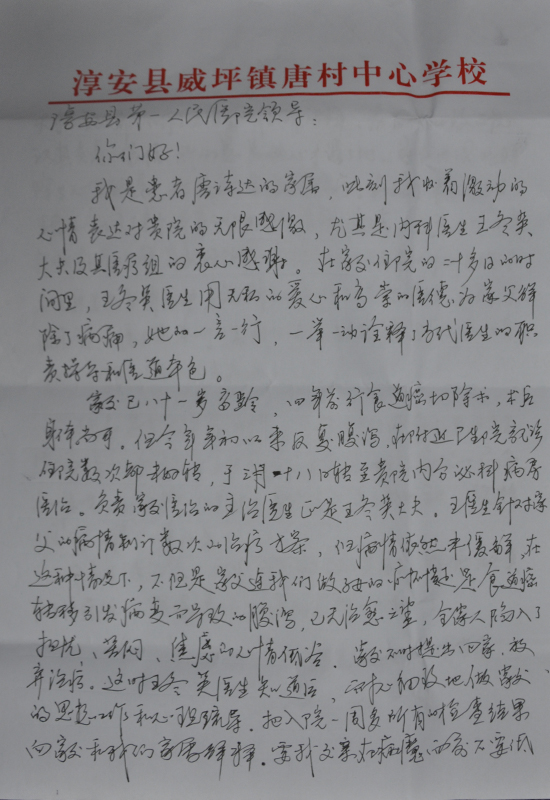 淳安县威坪镇唐村中心学校
淳安县第一人民医院领导：
你们好！
我是患者唐诗达的家属，此刻我怀着激动的
心情表达对贵院的无限感激，尤其是内科医生王冬英
大夫及其医疗组的衷心感谢。在家父住院的二十多日的时
间里，王冬英医生用无私的爱心和高尚的医德为家父解
除了病痛，她的一言一行，一举一动诠释了当代医生的职
责操守和医道本色。
家父已八十一岁高龄，四年前行食道癌切除术，术后
身体尚可。但今年年初以来反复腹泻，在附近卫生院就诊
住院数次却未好转，于三月十八日转至贵院内分泌科病房
医治。负责家父医治的主治医生正是王冬英大夫。王医生针对家
父的病情制订数次的治疗方案，但病情依然未缓解，在
这种情况下，不但是家父连我们做子女的亦怀疑是食道癌
转移引发病变而导致的腹泻，已无治愈之望，全家人陷入了
担忧、苦闷、焦虑的心情低谷，家父不时提出回家，放
弃治疗。这时王冬英医生知道后，耐心细致地做家父
的思想工作和心理疏导，把入院一周多所有的检查结果
向家父和我们家属解释。要我父亲在病魔面前不要低